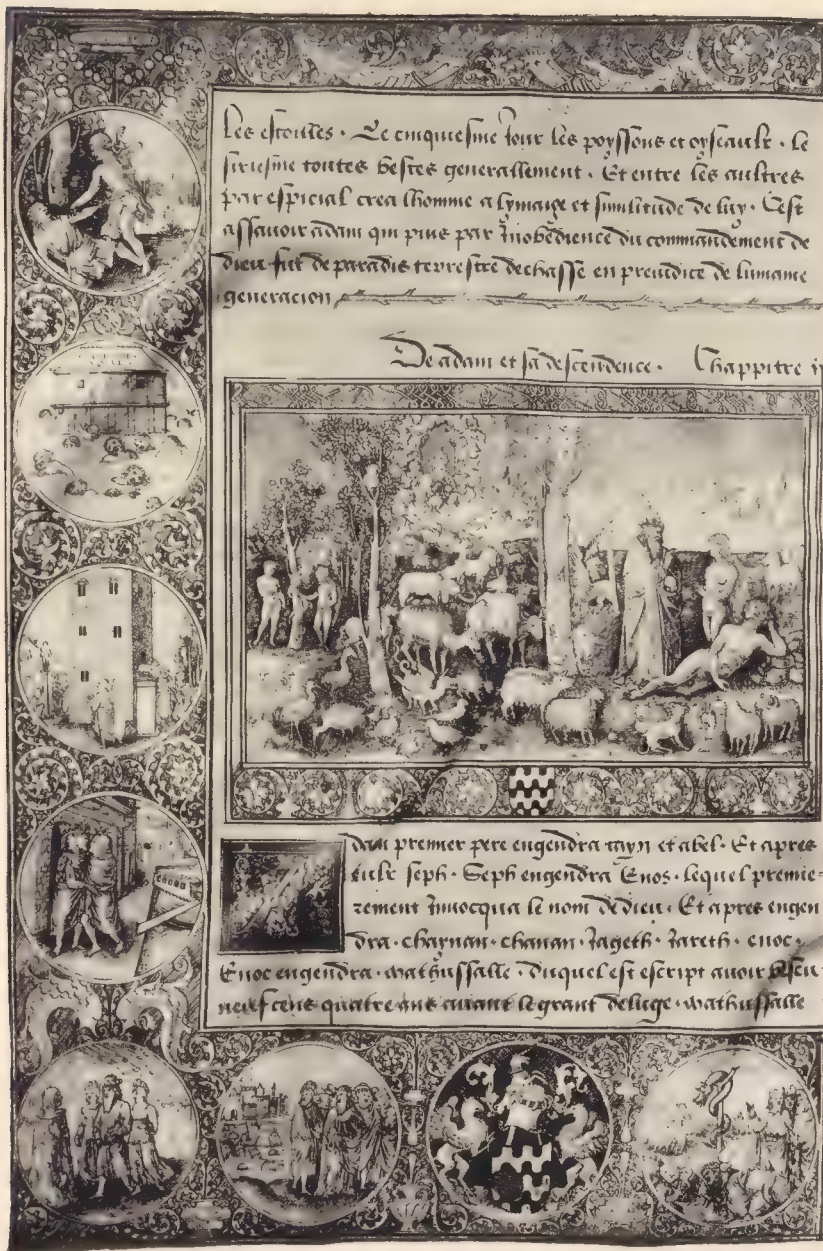 les estoilles · Le cinquiesme iour les poyssons et oyseaulx · le
sixiesme toutes bestes generallement · Et entre les aultres
par espicial crea lhomme a lymaige et similitude de luy · Cest
assauoir adam qui puis par inobedience du commandement de
dieu fut de paradis terrestre dechasse en preiudice de lumaine
generacion
De adam et sa descendence · Chappitre ij
dam premier pere engendra cayn et abel · Et apres
eulx seph · Seph engendra Enos · lequel premie=
rement Inuocqua le nom de dieu · Et apres engen
dra · chaynan · chanan · Iageth · Iareth · enoc ·
Enoc engendra · mathussalle · duquel est escript auoir
neuf cens quatre ans auant le grant deluge · mathussalle